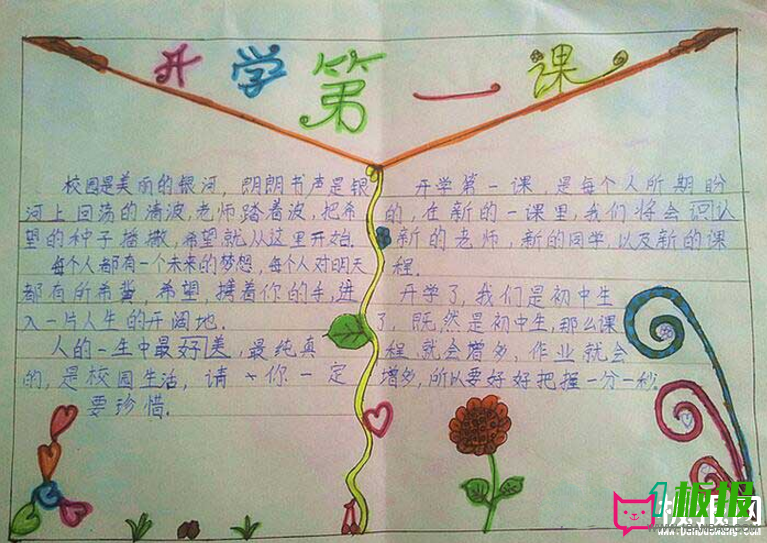 开学第一课
校园是美丽的银河,朗朗书声是银
河上回荡的清波,老师踏着波,把希
望的种子播撒,希望就从这里开始.
每个人都有一个未来的梦想,每个人对明天
都有所希冀,希望,携着你的手,进
入一片人生的开阔地.
人的一生中最好美,最纯真
的,是校园生活,请 你一定
要珍惜.
开学第一课,是每个人所期盼
的,在新的一课里,我们将会识认
新的老师,新的同学,以及新的课
程.
开学了,我们是初中生
了,既然是初中生,那么课
程就会增多,作业就会
增多,所以要好好把握一分一秒.
1板报
www.1banbao.com